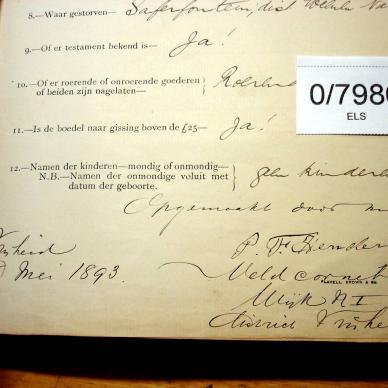 8.—Waar gestorven— Saferfontein, dist
9.—Of er testament bekend is— Ja!
10.—Of er roerende of onroerende goederen
of beiden zijn nagelaten—
0/7980
ELS
11.—Is de boedel naar gissing boven de £25— Ja!
12.—Namen der kinderen—mondig of onmondig—
N.B.—Namen der onmondige voluit met
datum der geboorte. geen kinderen
Opgemaakt door
Mei 1893.
Veld cornet
Wijk N I
district